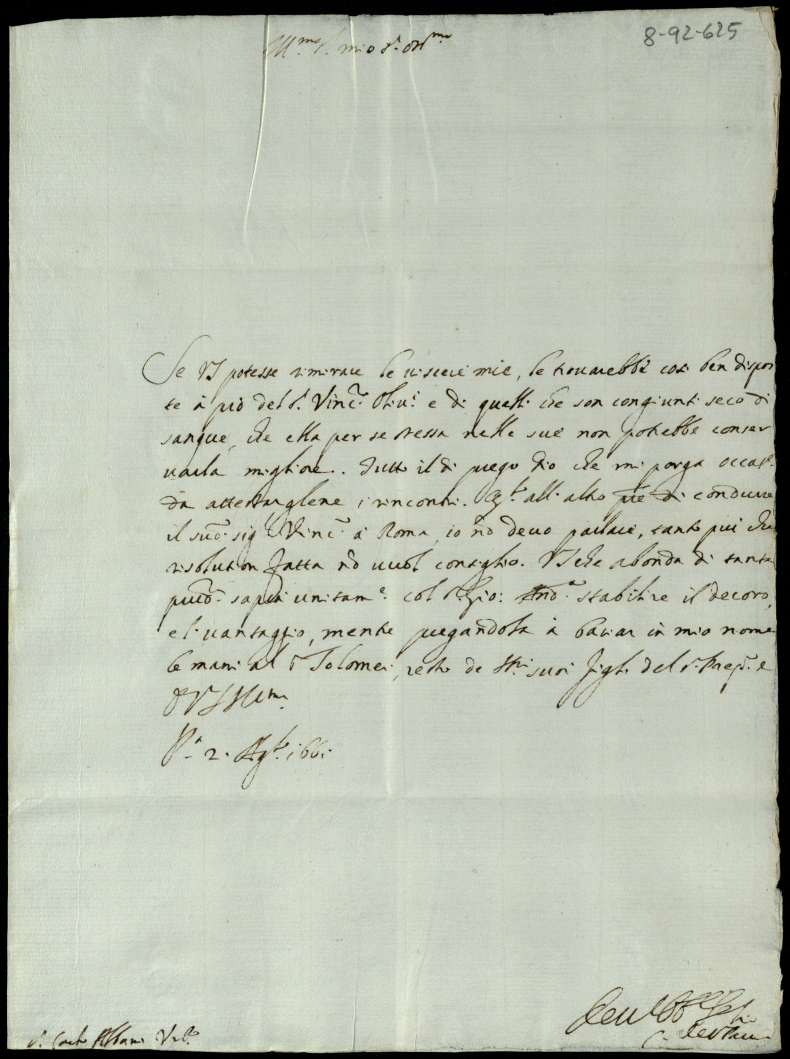 8-92-625
Ill.mo S. mio S. oss.mo
Se VS potesse rimirare le viscere mie, le trovarebbe così ben dispos
te à prò del S.r Vinc.o Oliv.i e di quelli che son congiunti seco di
sangue, che ella per se stessa nelle sue non potrebbe conser
varla migliore. Tutto il dì prego Dio che mi porga occas.e
da attestarglene i rincontri. q.to all'altro di condurre
il suo sig.r Vinc.o à Roma, io nõ devo parlare, tanto più che
risolution fatta nõ vuol consiglio. VS che abonda di tanta
prud.a saprà unitam.e col S. stabilire il decoro,
e l'vantaggio, mentre pregandola à baciar in mio nome
le mani al S Tolomei, resto de suoi figli del S. e
di VS Ill.ma
P.a 2. Ag.to 1661
S. Carlo Albani